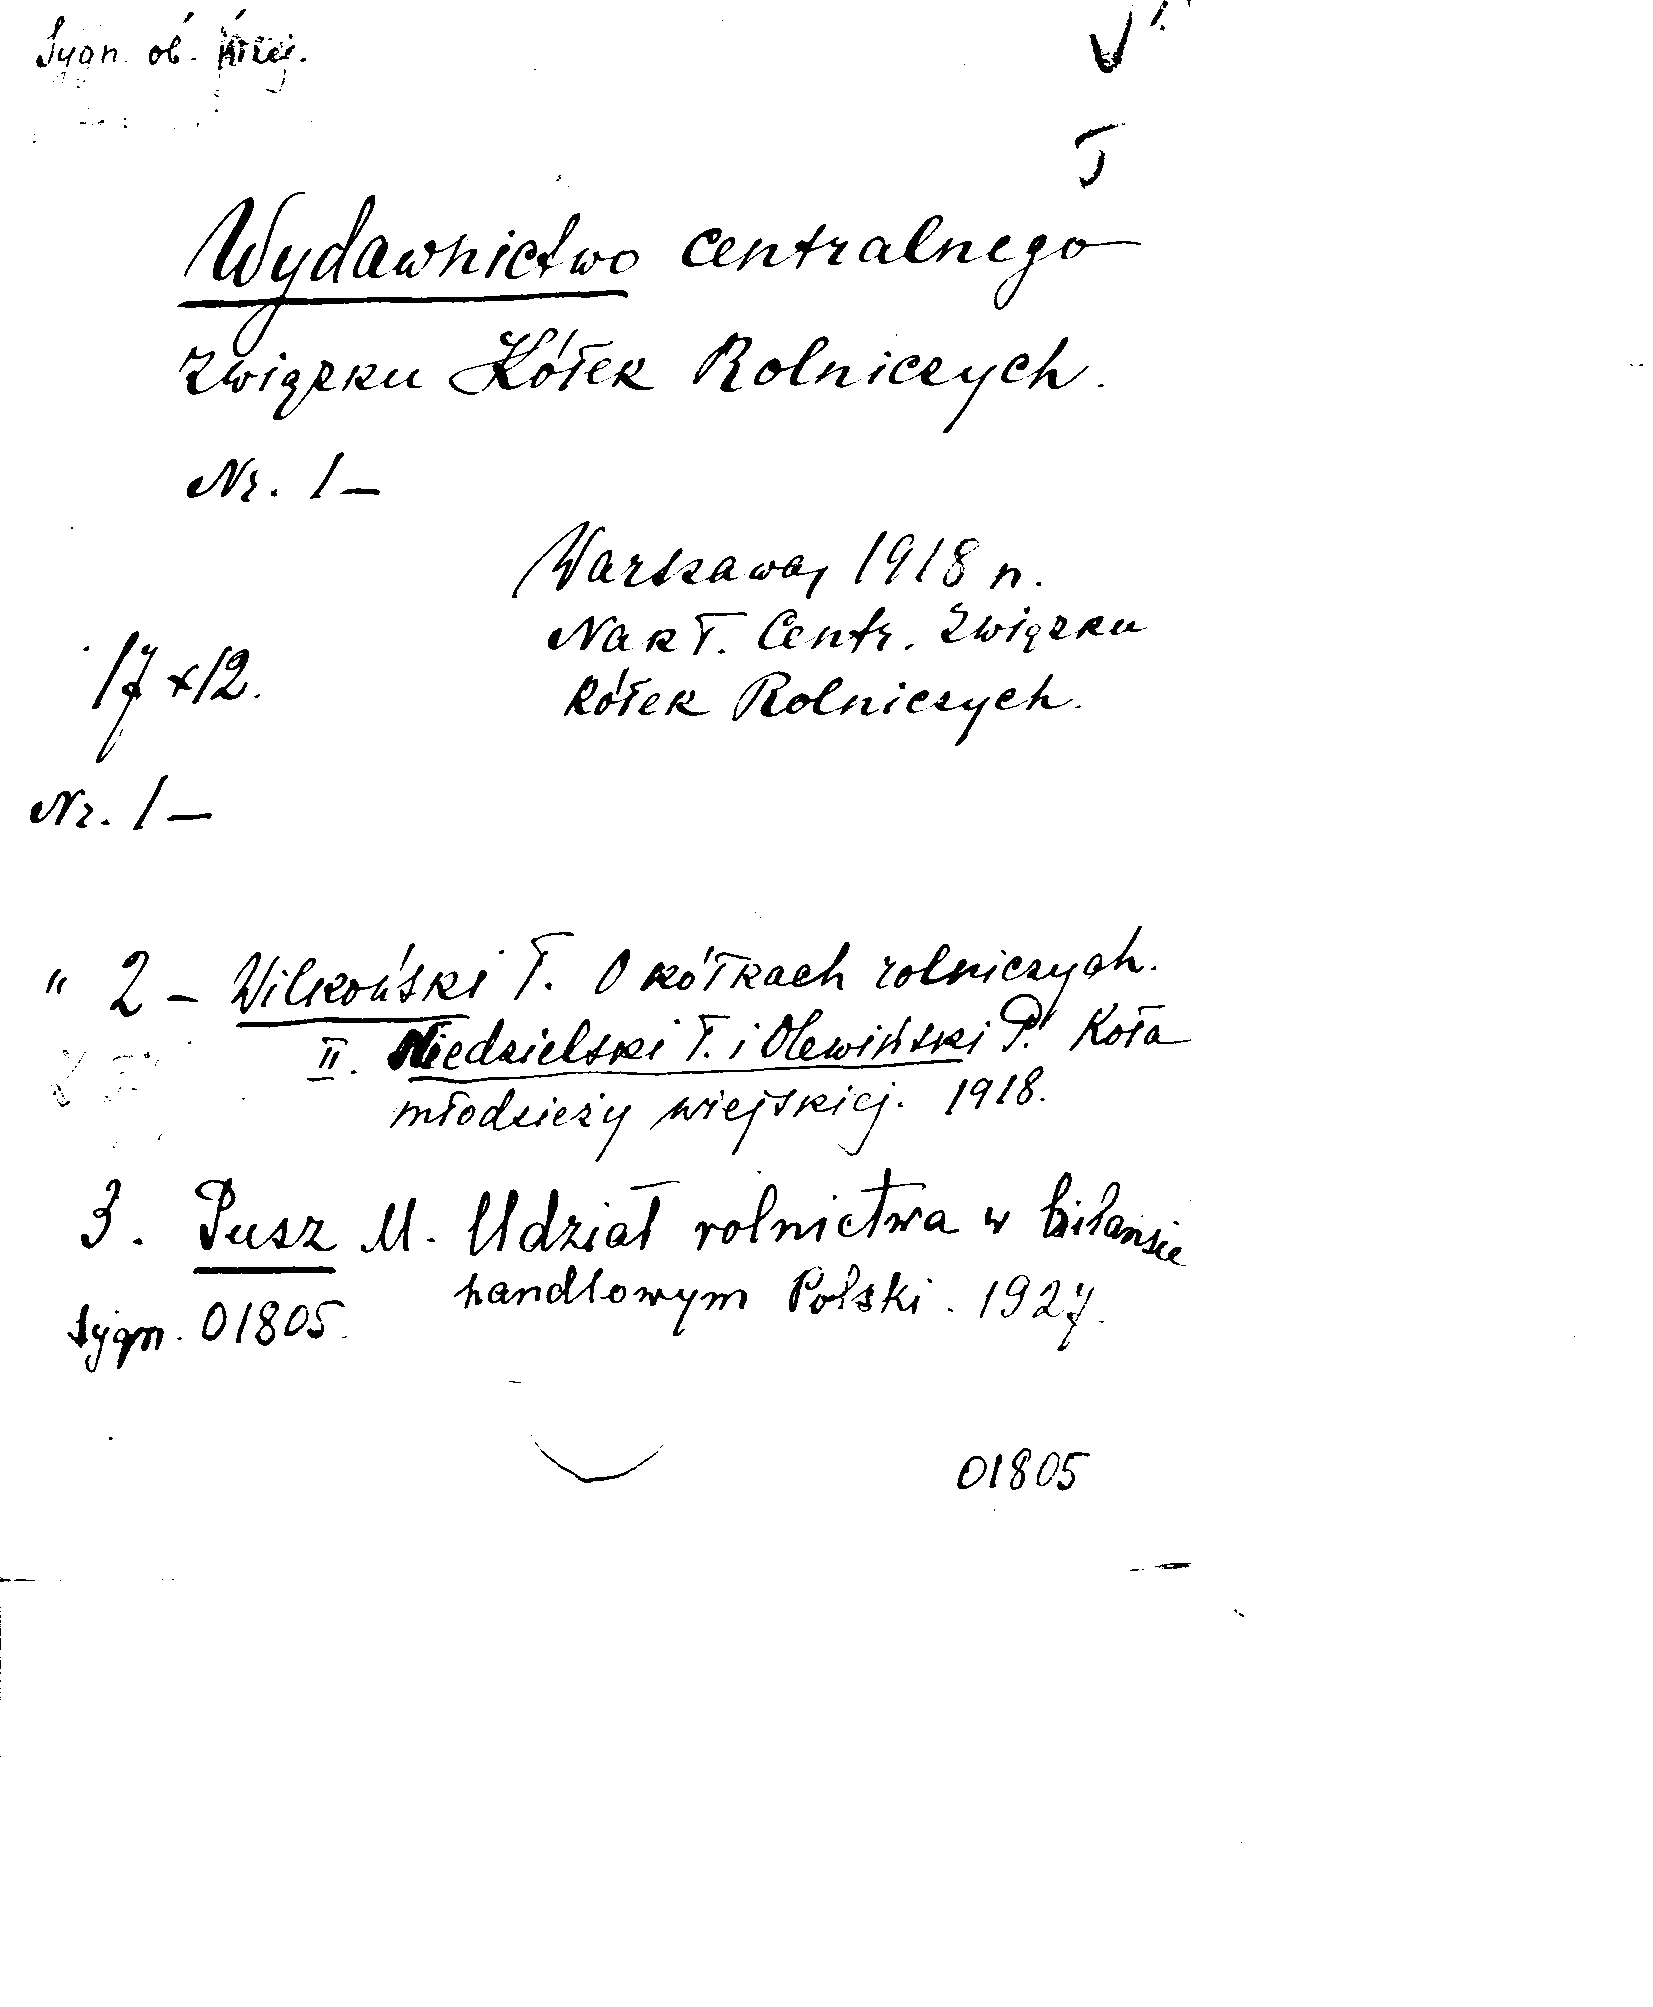 Sygn. ob. niżej.
V
T
Wydawnictwo centralnego
Związku Kółek Rolniczych.
Nr. 1 —
Warszawa, 1918 n.
Nakł. Centr. Związku
Kółek Rolniczych.
17 x 12.
Nr. 1 —
" 2 — Wilkoński T. O kółkach rolniczych.
II. Niedzielski T. i Olewiński P. Koła
młodzieży wiejskiej. 1918.
3. Pusz M. Udział rolnictwa w bilansie
handlowym Polski. 1927.
Sygn. 01805.
01805